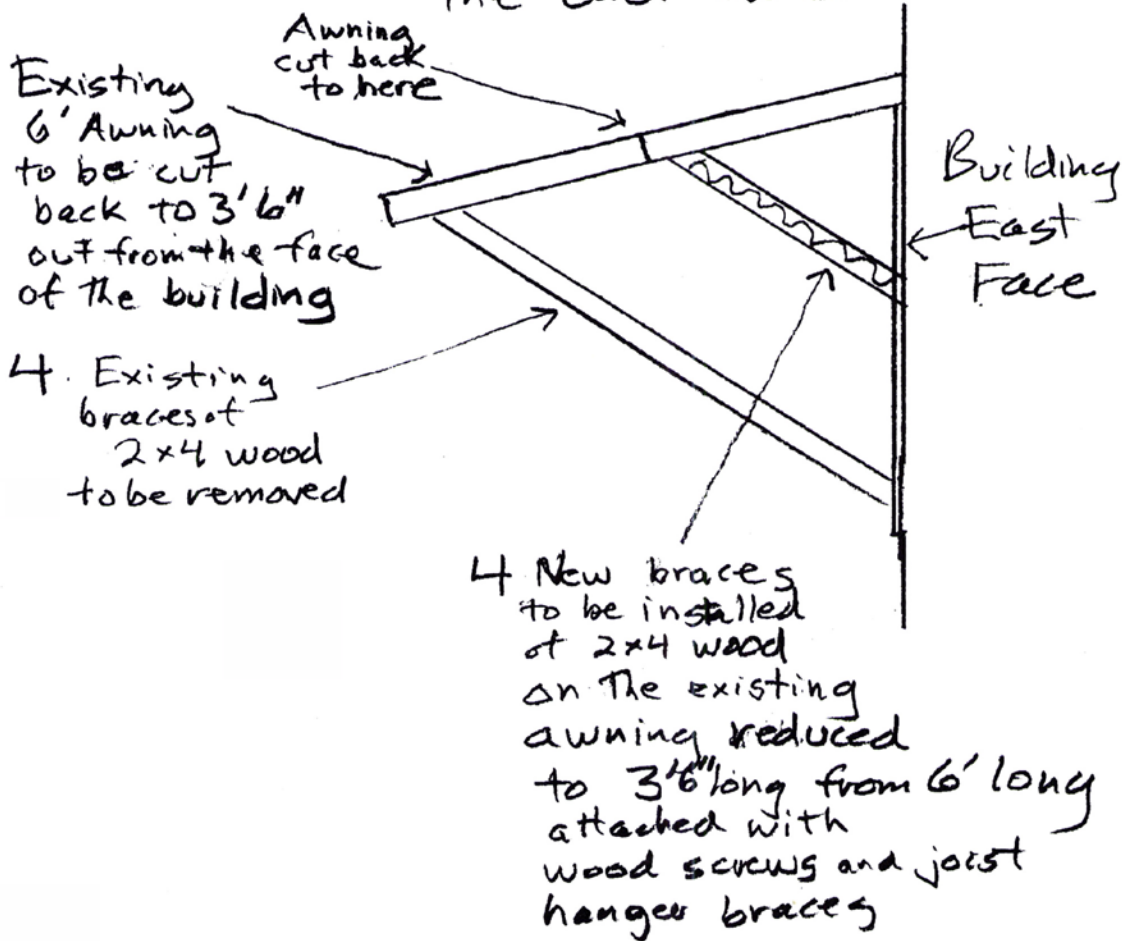 The East
Awning
cut back
to here
Existing
6' Awning
to be cut
back to 3'6"
out from the face
of the building
Building
East
Face
4 Existing
braces of
2x4 wood
to be removed
4 New braces
to be installed
of 2x4 wood
on The existing
awning reduced
to 3'6" long from 6' long
attached with
wood screws and joist
hanger braces